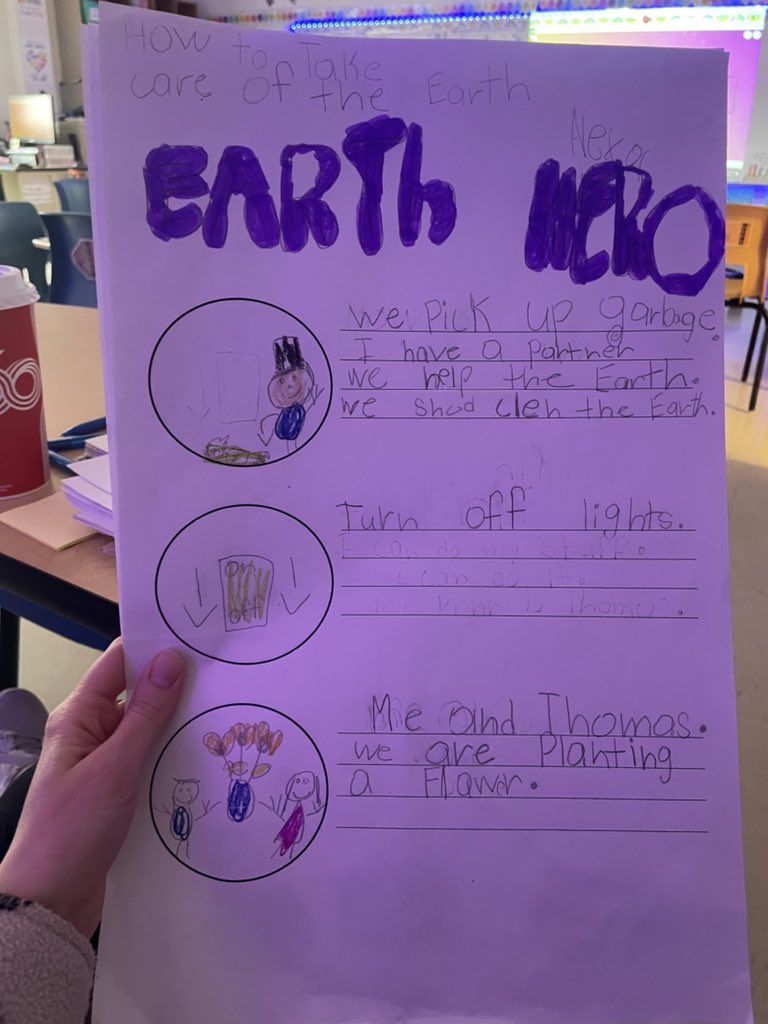 How to Take
care of the Earth
EARTh HERO
we pick up garbage.
I have a partner
we help the Earth.
we shod cleh the Earth.
Turn off lights.
I can do my stuff.
I can do it.
Me and Thomas.
we are Planting
a Flawr.